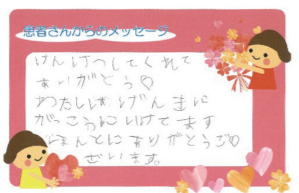 患者さんからのメッセージ
けんけつしてくれて
ありがとう♡
わたしはげんきに
がっこうにいけてます
ほんとにありがとうご
ざいます。